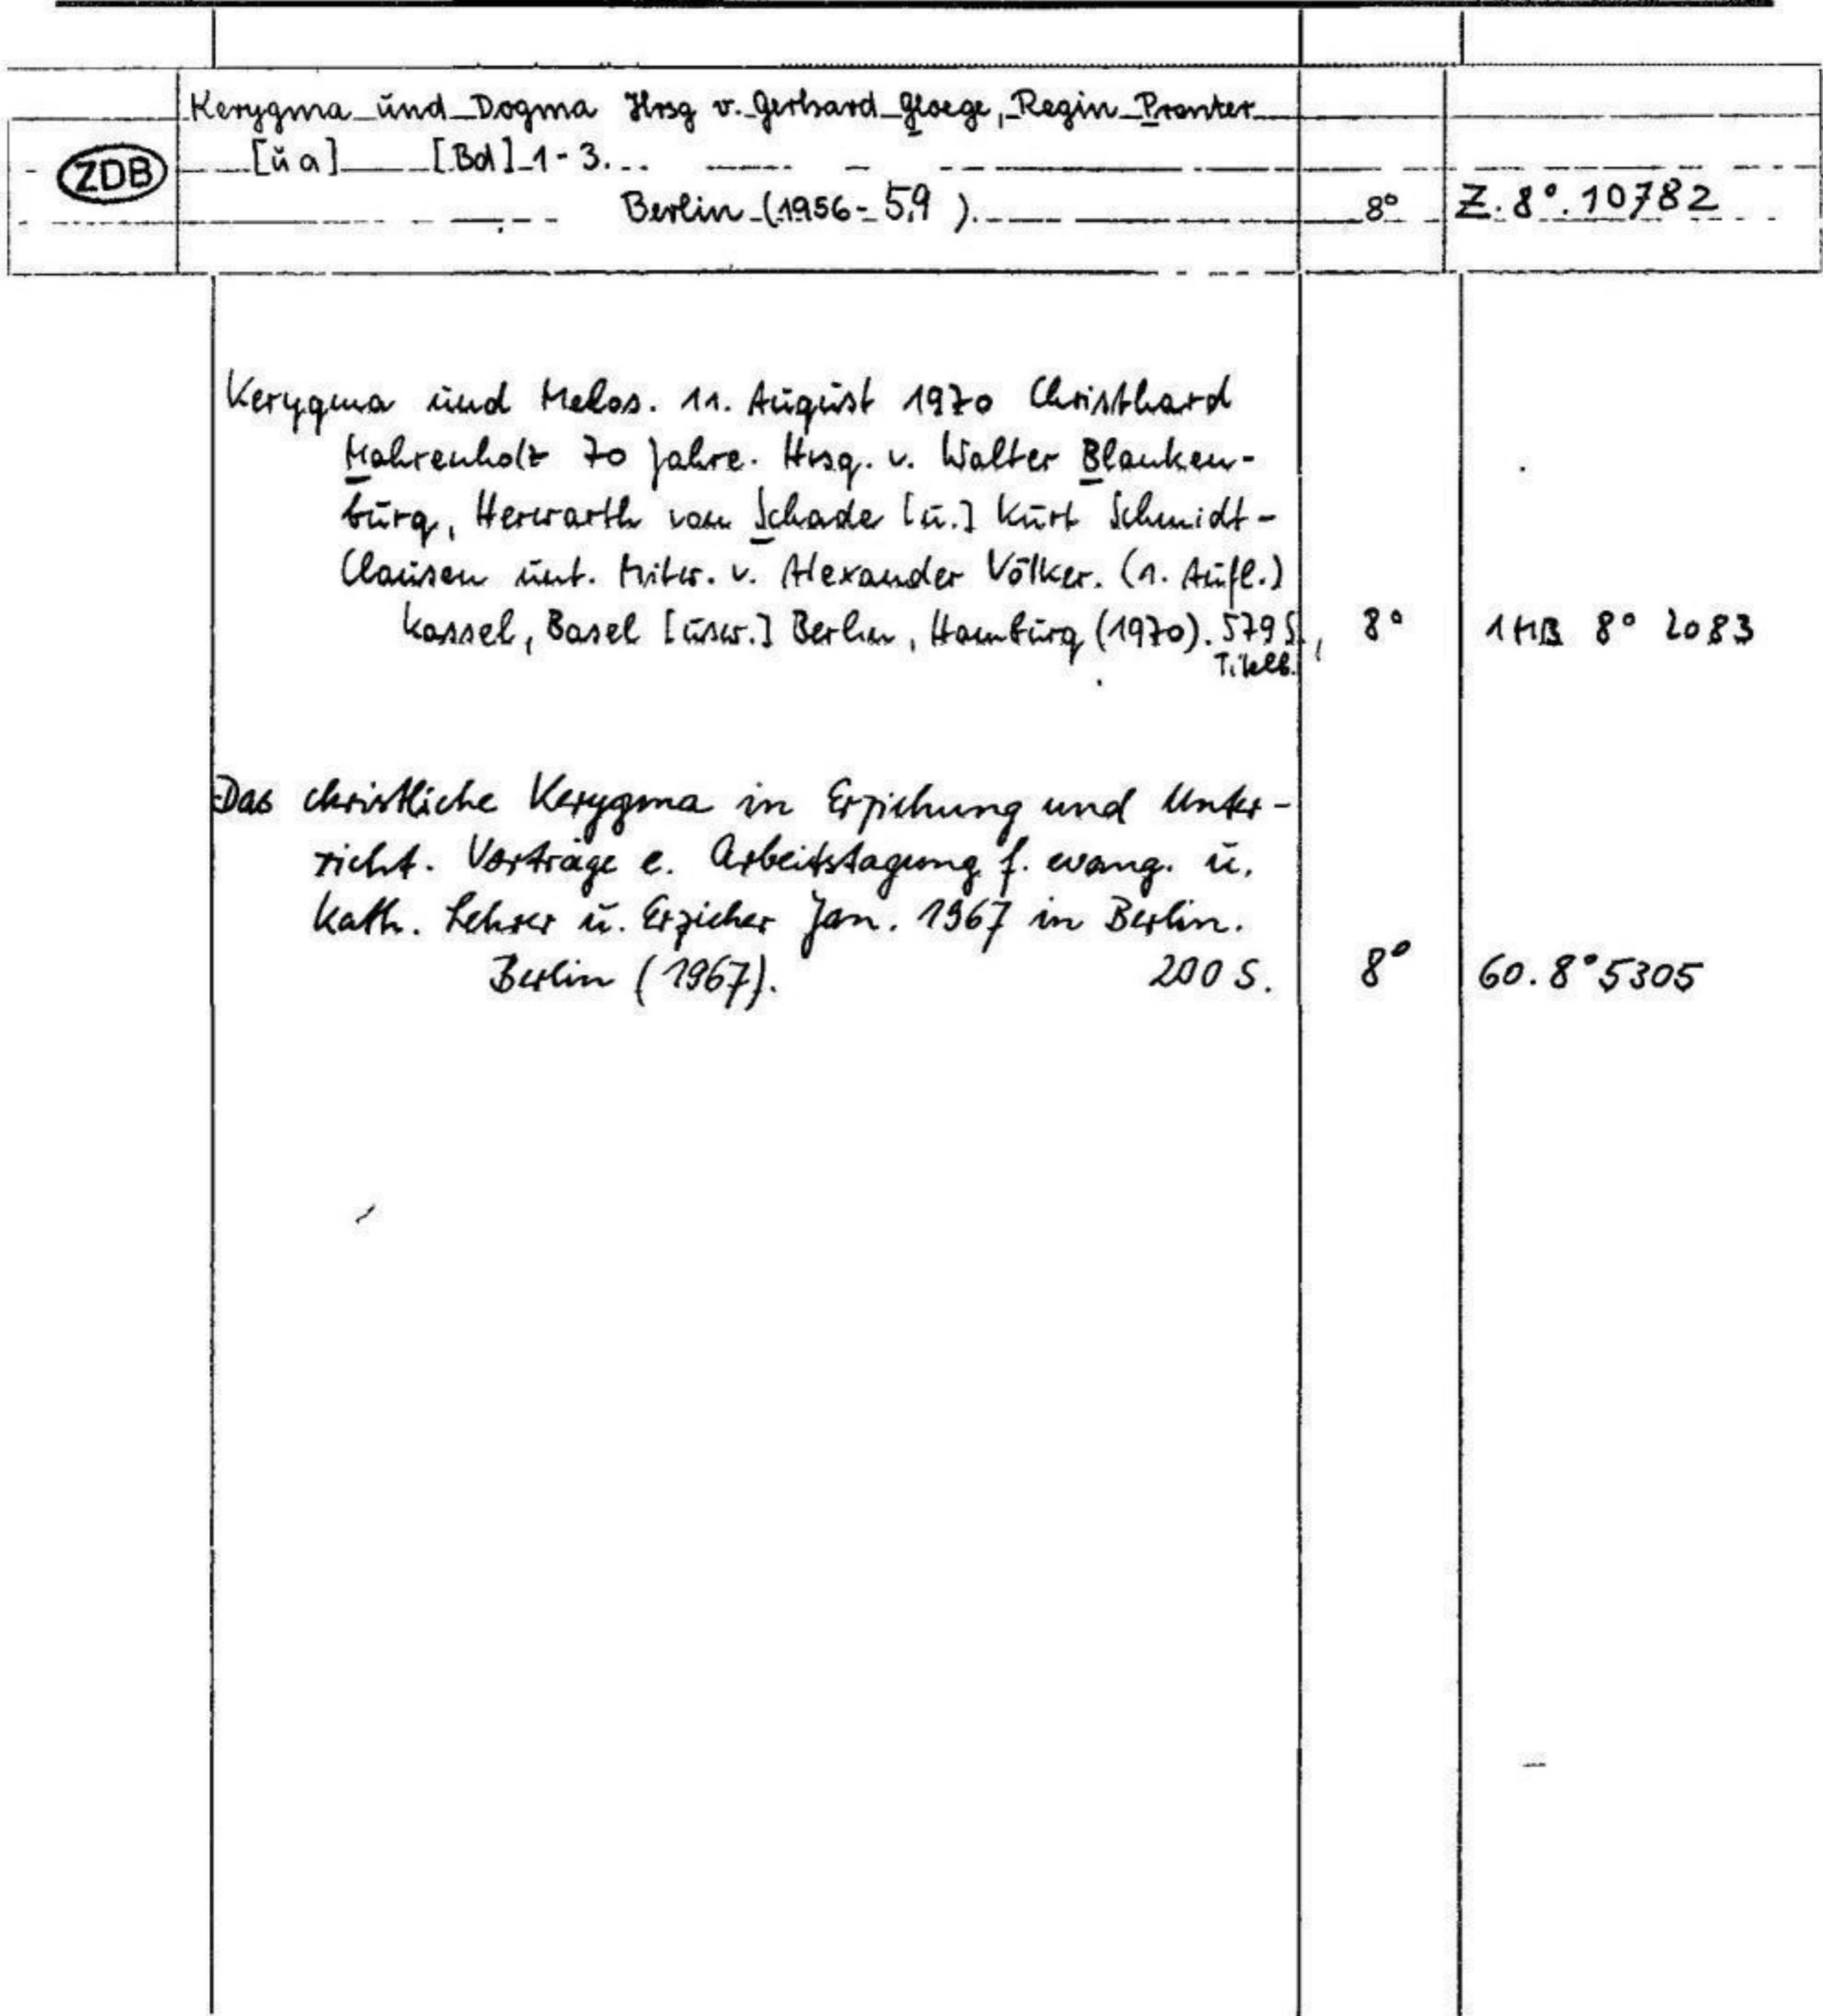 Kerygma und Dogma Hrsg v. Gerhard Gloege, Regin Prenter
ZDB [u a] [Bd] 1-3.
Berlin (1956-59). 8° Z. 8°. 10782
Kerygma und Melos. 11. August 1970 Christhard
Mahrenholz 70 Jahre. Hrsg. v. Walter Blanken-
burg, Herwarth von Schade [u.] Kurt Schmidt-
Clausen unt. Mitw. v. Alexander Völker. (1. Aufl.)
Kassel, Basel [usw.] Berlin, Hamburg (1970). 579 S., 8° 1 MB 8° 2083
Titelb.
Das christliche Kerygma in Erziehung und Unter-
richt. Vorträge e. Arbeitstagung f. evang. u.
kath. Lehrer u. Erzieher Jan. 1967 in Berlin.
Berlin (1967). 200 S. 8° 60. 8° 5305